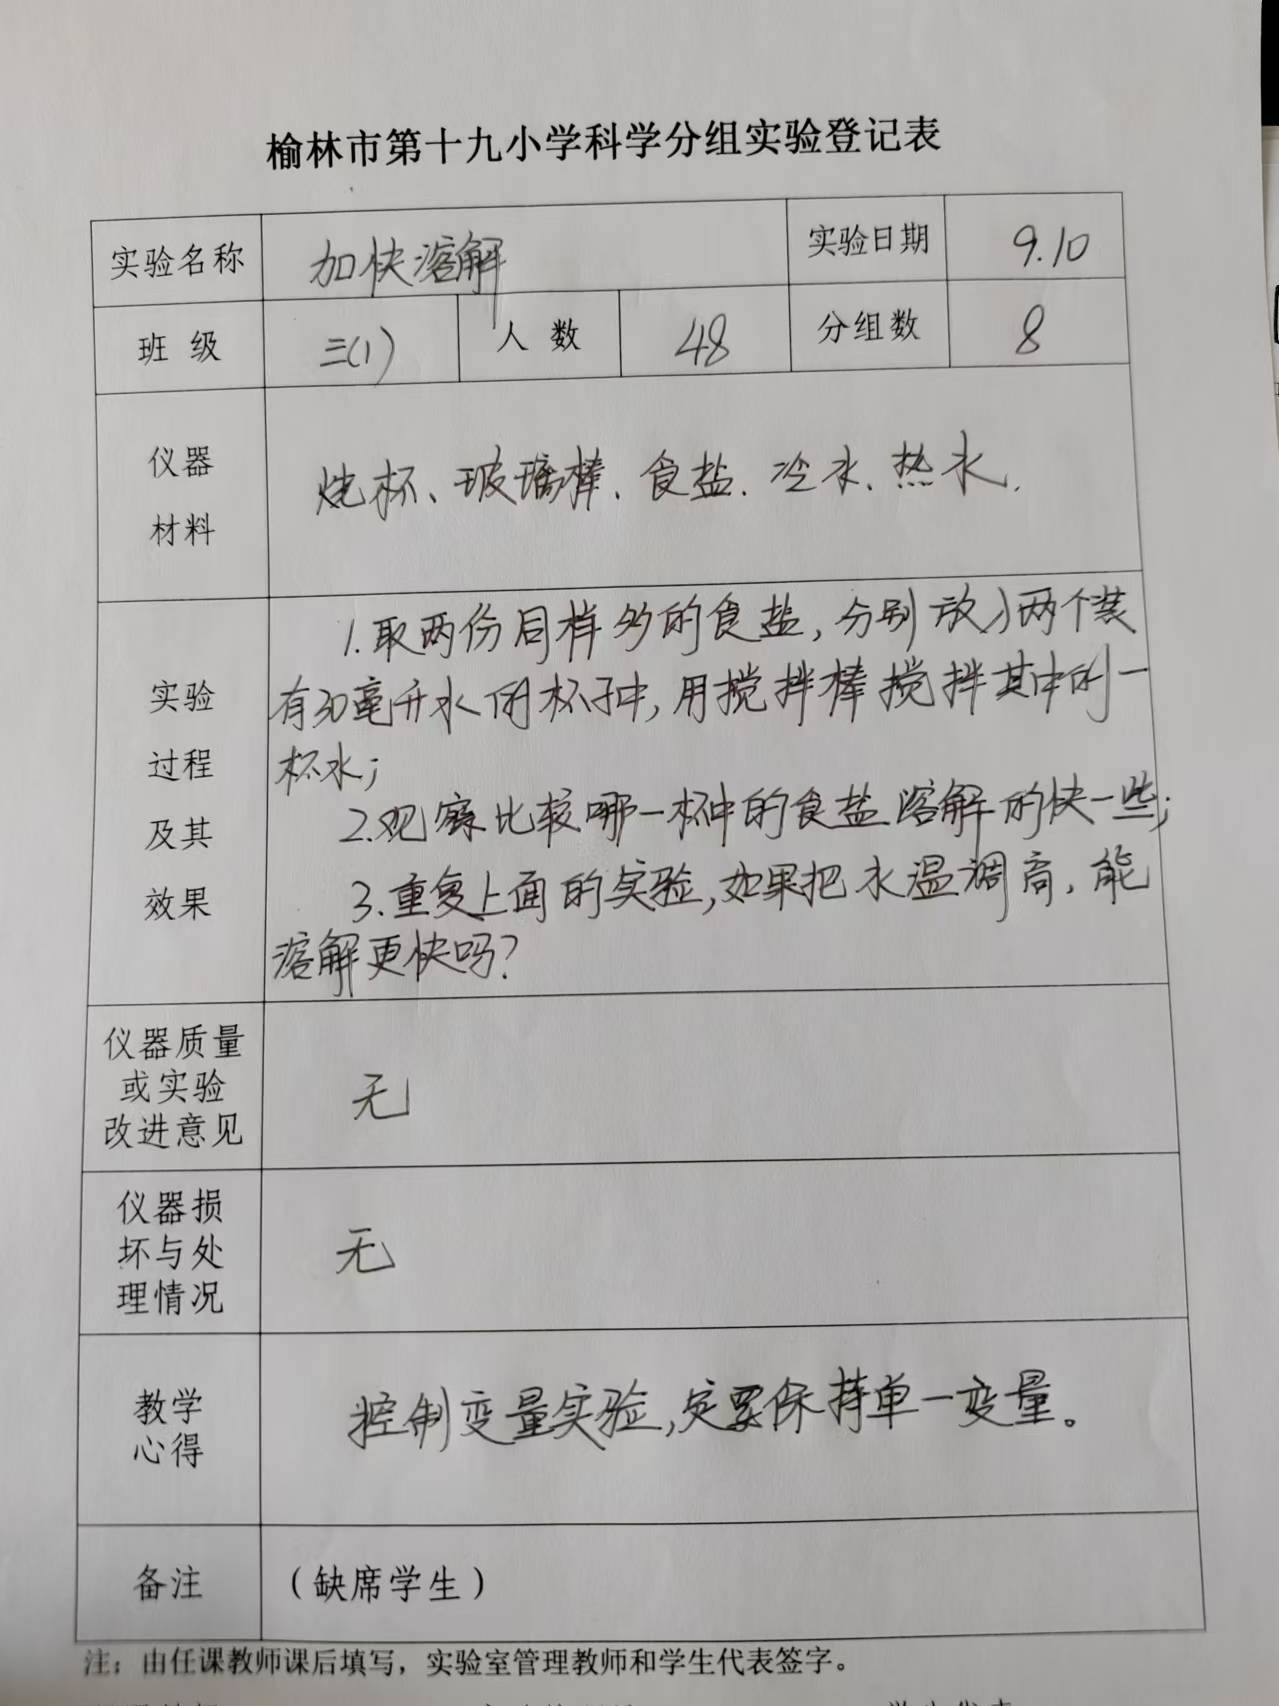 榆林市第十九小学科学分组实验登记表
实验名称 加快溶解 实验日期 9.10
班 级 三(1) 人 数 48 分组数 8
仪器
材料
烧杯、玻璃棒、食盐、冷水、热水.
实验
过程
及其
效果
1.取两份同样多的食盐,分别放入两个装
有30毫升水的杯子中,用搅拌棒搅拌其中的一
杯水;
2.观察比较哪一杯中的食盐溶解的快一些;
3.重复上面的实验,如果把水温调高,能
溶解更快吗?
仪器质量
或实验
改进意见
无
仪器损
坏与处
理情况
无
教学
心得
控制变量实验,一定要保持单一变量。
备注 (缺席学生)
注:由任课教师课后填写,实验室管理教师和学生代表签字。